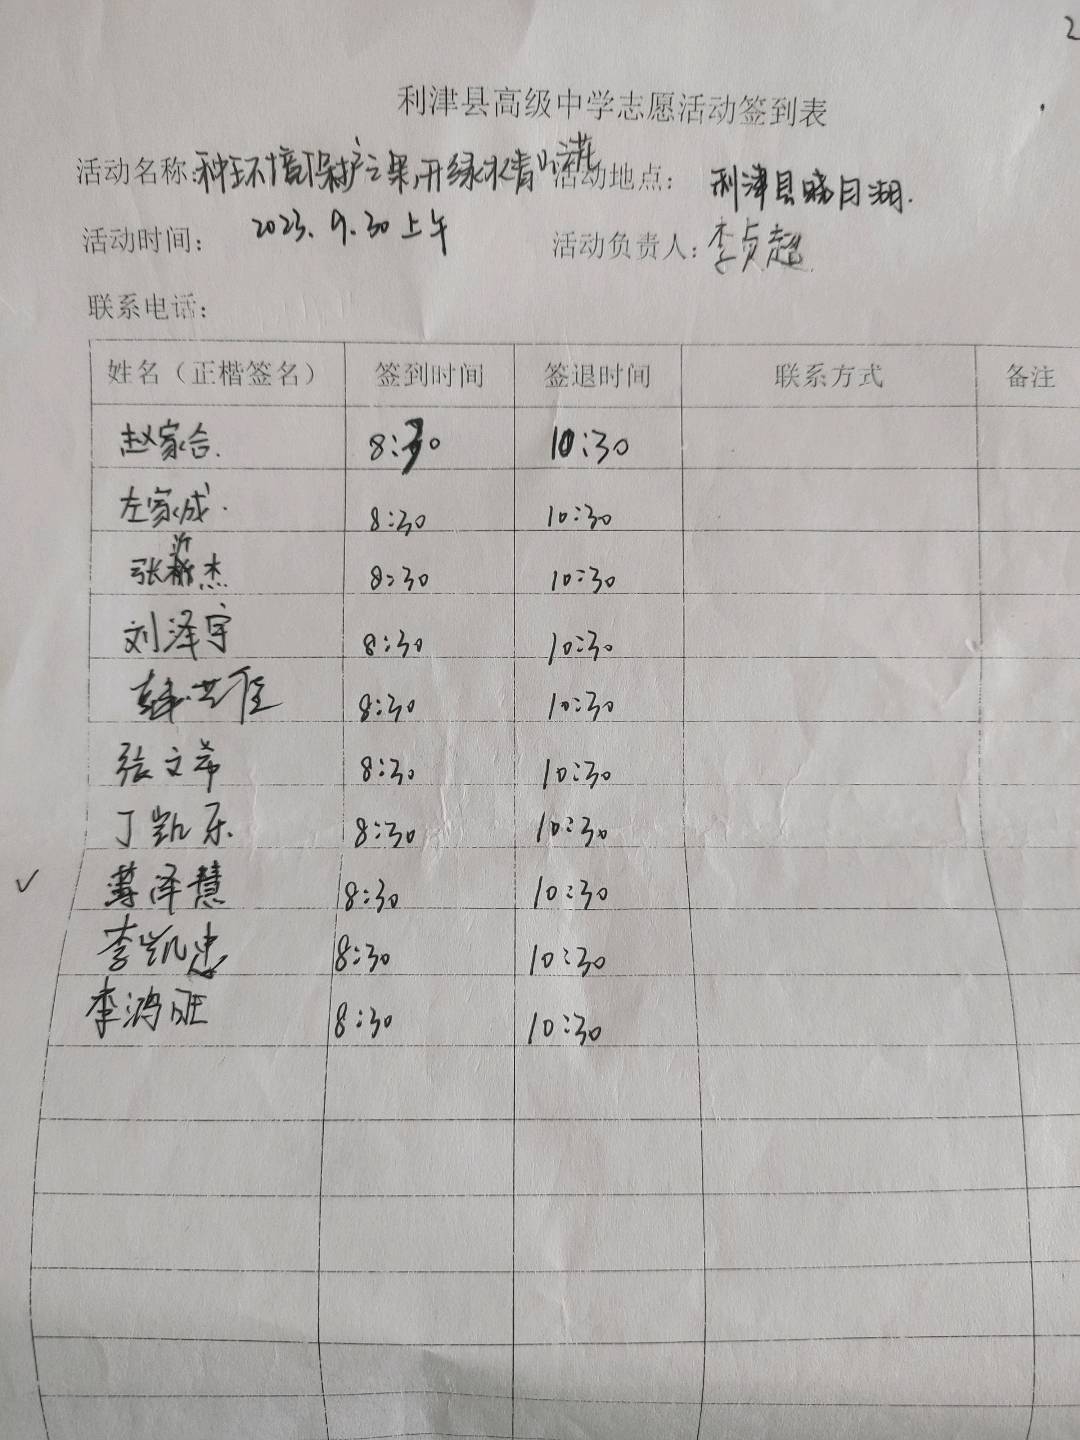 2
利津县高级中学志愿活动签到表
活动名称:种环境保护之果,开绿水青山 活动地点: 利津县 月湖.
活动时间: 2023.9.30上午 活动负责人:李贞超
联系电话:
姓名（正楷签名） 签到时间 签退时间 联系方式 备注
赵家合. 8:30 10:30
左家成. 8:30 10:30
张 杰 8:30 10:30
刘泽宇 8:30 10:30
8:30 10:30
张文希 8:30 10:30
丁凯乐 8:30 10:30
✓ 薄泽慧 8:30 10:30
李凯忠 8:30 10:30
李鸿旺 8:30 10:30